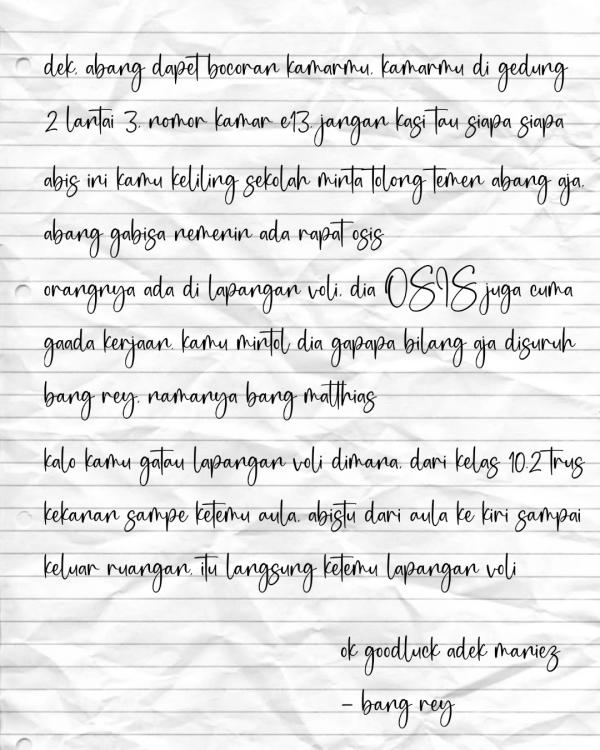 dek, abang dapet bocoran kamarmu, kamarmu di gedung
2 lantai 3, nomor kamar e13, jangan kasi tau siapa siapa
abis ini kamu keliling sekolah minta tolong temen abang aja,
abang gabisa nemenin ada rapat osis
orangnya ada di lapangan voli, dia OSIS juga cuma
gaada kerjaan, kamu mintol dia gapapa bilang aja disuruh
bang rey, namanya bang matthias
kalo kamu gatau lapangan voli dimana, dari kelas 10.2 trus
kekanan sampe ketemu aula, abistu dari aula ke kiri sampai
keluar ruangan, itu langsung ketemu lapangan voli
ok goodluck adek maniez
- bang rey